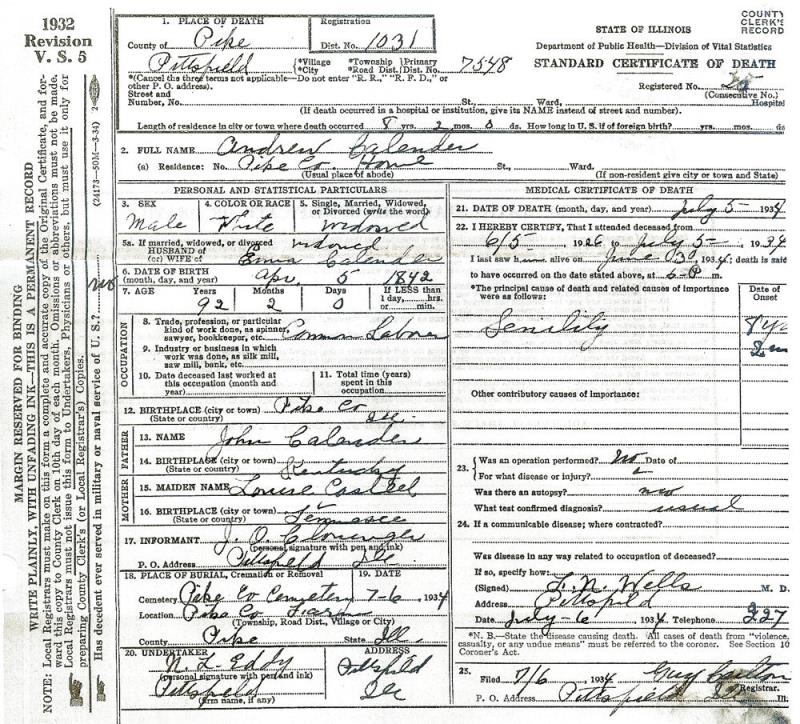 1932
Revision
V. S. 5
COUNTY
CLERK'S
RECORD
MARGIN RESERVED FOR BINDING
WRITE PLAINLY, WITH UNFADING INK—THIS IS A PERMANENT RECORD
NOTE: Local Registrars must make on this form a complete and accurate copy of the Original Certificate, and forward this copy to County Clerk on 10th day of each month. Omissions or abbreviations must not be made.
Local Registrars must not issue this form to Undertakers, Physicians or others, but must use it only for preparing County Clerk's (or Local Registrar's) Copies.
Has decedent ever served in military or naval service of U. S.? no
(24173—50M—3-34) 2
1. PLACE OF DEATH
Registration
County of Pike Dist. No. 1031
Pittsfield *Village *Township Primary
*City *Road Dist. Dist. No. 7548
*(Cancel the three terms not applicable—Do not enter "R. R.," "R. F. D.," or
other P. O. address).
Street and
Number, No. St., Ward, Hospital
(If death occurred in a hospital or institution, give its NAME instead of street and number).
Length of residence in city or town where death occurred 8 yrs. 2 mos. 0 ds. How long in U. S. if of foreign birth? yrs. mos. ds
STATE OF ILLINOIS
Department of Public Health—Division of Vital Statistics
STANDARD CERTIFICATE OF DEATH
Registered No.
(Consecutive No.)
2. FULL NAME Andrew Calender
(a) Residence: No. Pike Co. Home St., Ward.
(Usual place of abode) (If non-resident give city or town and State)
PERSONAL AND STATISTICAL PARTICULARS
3. SEX 4. COLOR OR RACE 5. Single, Married, Widowed,
or Divorced (write the word)
Male White Widowed
5a. If married, widowed, or divorced widowed
HUSBAND of
(or) WIFE of Emma Calender
6. DATE OF BIRTH
(month, day, and year) Apr. 5 1842
7. AGE Years Months Days If LESS than
1 day, hrs.
or min.
92 2 0
OCCUPATION
8. Trade, profession, or particular
kind of work done, as spinner,
sawyer, bookkeeper, etc. Common Laborer
9. Industry or business in which
work was done, as silk mill,
saw mill, bank, etc.
10. Date deceased last worked at
this occupation (month and
year)
11. Total time (years)
spent in this
occupation
12. BIRTHPLACE (city or town) Pike Co
(State or country) Ill.
FATHER
13. NAME John Calender
14. BIRTHPLACE (city or town)
(State or country) Kentucky
MOTHER
15. MAIDEN NAME Louise Casteel
16. BIRTHPLACE (city or town)
(State or country) Tennessee
17. INFORMANT J. O.
(personal signature with pen and ink)
P. O. Address Pittsfield Ill
18. PLACE OF BURIAL, Cremation or Removal 19. DATE
Cemetery Pike Co Cemetery 7-6, 1934
Location Pike Co Farm
(Township, Road Dist., Village or City)
County Pike State Ill.
20. UNDERTAKER ADDRESS
N. L. Eddy Pittsfield
(personal signature with pen and ink)
Pittsfield Ill
(firm name, if any)
MEDICAL CERTIFICATE OF DEATH
21. DATE OF DEATH (month, day, and year) July 5- 1934
22. I HEREBY CERTIFY, That I attended deceased from
6/5- 1926 to July 5- 1934
I last saw him alive on June 30, 1934; death is said
to have occurred on the date stated above, at 6-P m.
*The principal cause of death and related causes of importance
were as follows:
Date of
Onset
Senility
Other contributory causes of importance:
23. Was an operation performed? No Date of
For what disease or injury?
Was there an autopsy? no
What test confirmed diagnosis? usual
24. If a communicable disease; where contracted?
Was disease in any way related to occupation of deceased?
If so, specify how:
(Signed) Wells M. D.
Address Pittsfield
Date July-6 1934 Telephone 227
*N. B.—State the disease causing death. All cases of death from "violence,
casualty, or any undue means" must be referred to the coroner. See Section 10
Coroner's Act.
25.
Filed 7/6, 1934 Guy
Registrar.
P. O. Address Pittsfield Ill